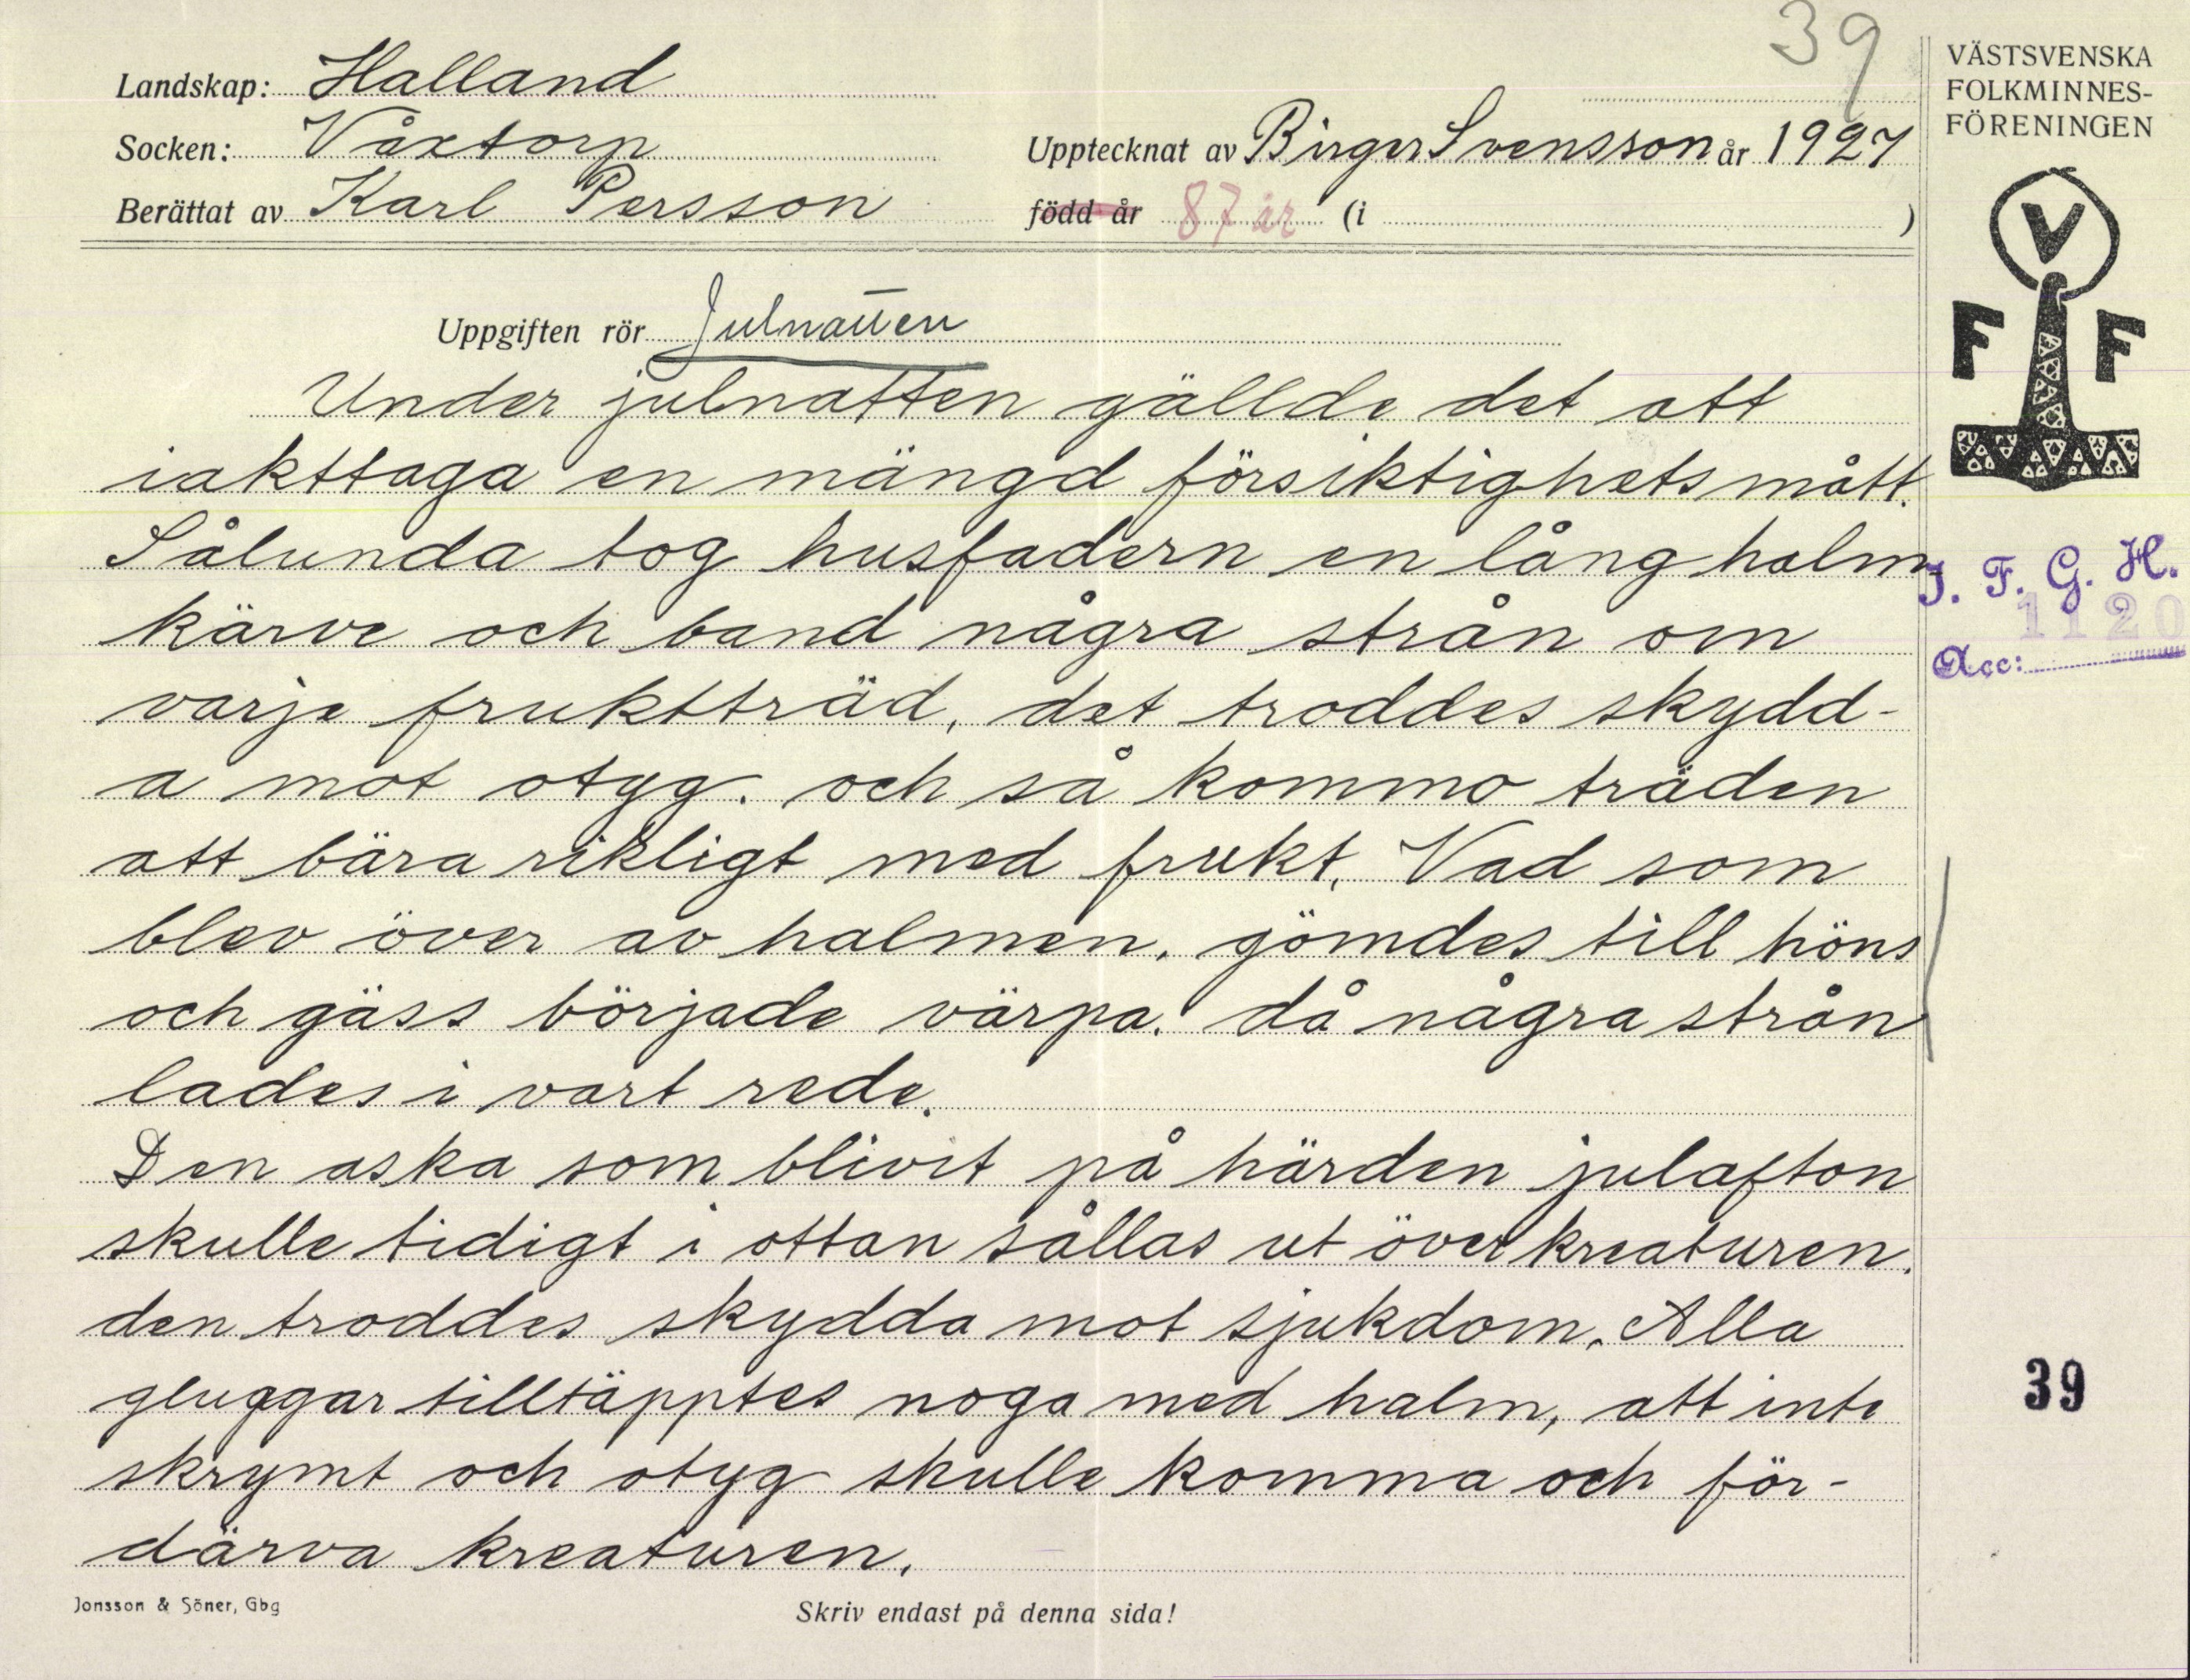 39
Landskap: Halland
Socken: Våxtorp
Berättat av Karl Persson
Upptecknat av Birger Svensson år 1927
född år 87 år (i )
VÄSTSVENSKA
FOLKMINNES-
FÖRENINGEN
V
F F
Uppgiften rör Julnatten
Under julnatten gällde det att
iakttaga en mängd försiktighetsmått.
Sålunda tog husfadern en lång halm-
kärve och band några strån om
varje fruktträd, det troddes skydd-
a mot otyg. och så kommo träden
att bära rikligt med frukt. Vad som
blev över av halmen, gömdes till höns
och gäss började värpa. då några strån
lades i vart rede.
Den aska som blivit på härden julafton
skulle tidigt i ottan sållas ut över kreaturen.
den troddes skydda mot sjukdom. Alla
gluggar tilltäpptes noga med halm, att inte
skrymt och otyg skulle komma och för-
därva kreaturen.
I. F. G. H.
1120
Acc:
39
Jonsson & Söner, Gbg
Skriv endast på denna sida!